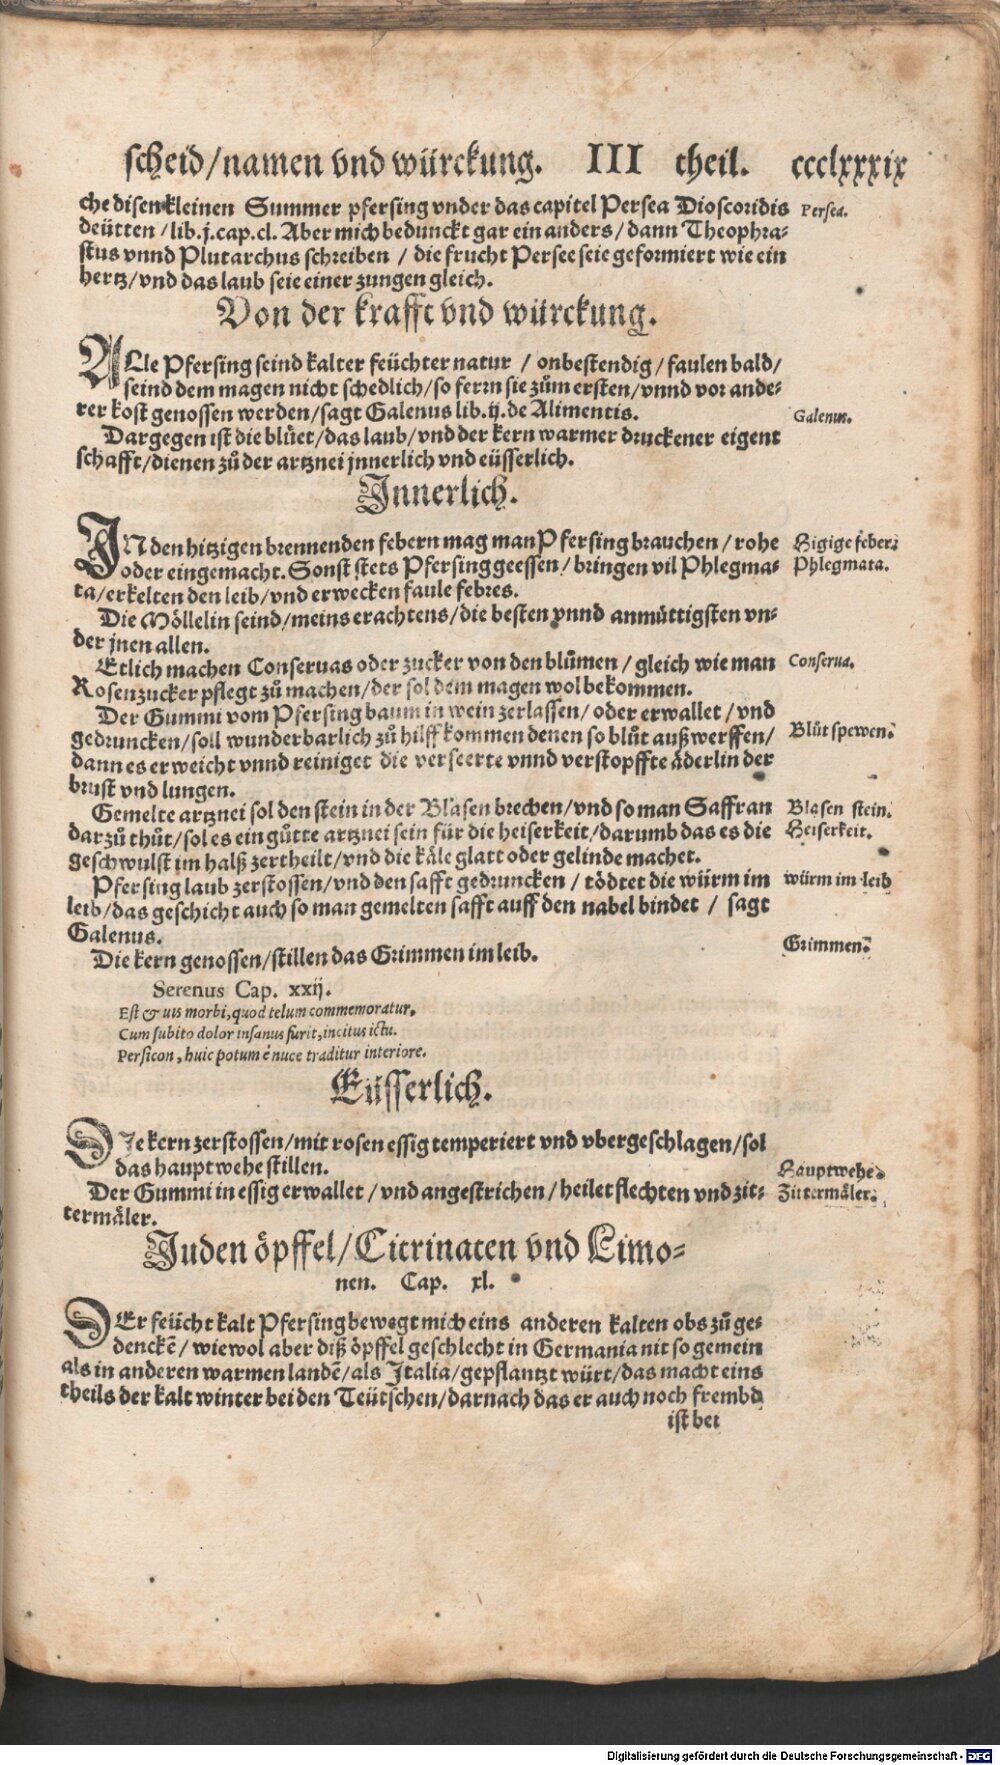 scheid/namen vnd würckung. III theil. ccclxxxix
che disen kleinen Summer pfersing vnder das capitel Persea Dioscoridis
Persea.
deütten/lib.j.cap.cl. Aber mich bedunckt gar ein anders/dann Theophra-
stus vnnd Plutarchus schreiben/die frucht Persee seie geformiert wie ein
hertz/vnd das laub seie einer zungen gleich.
Von der krafft vnd würckung.
ALle Pfersing seind kalter feüchter natur/onbestendig/faulen bald/
seind dem magen nicht schedlich/so ferrn sie zům ersten/vnnd vor ande-
rer kost genossen werden/sagt Galenus lib.ij.de Alimentis.
Galenus.
Dargegen ist die blüet/das laub/vnd der kern warmer druckener eigent
schafft/dienen zů der artznei jnnerlich vnd eüsserlich.
Jnnerlich.
JN den hitzigen brennenden febern mag man Pfersing brauchen/rohe
Higige feber.
oder eingemacht. Sonst stets Pfersing geessen/bringen vil Phlegma-
Phlegmata.
ta/erkelten den leib/vnd erwecken faule febres.
Die Möllelin seind/meins erachtens/die besten vnnd anmüttigsten vn-
der jnen allen.
Etlich machen Conseruas oder zucker von den blůmen/gleich wie man
Conserua.
Rosenzucker pflegt zů machen/der sol dem magen wol bekommen.
Der Gummi vom Pfersing baum in wein zerlassen/oder erwallet/vnd
gedruncken/soll wunderbarlich zů hilff kommen denen so blůt außwerffen/
Blůt spewen.
dann es erweicht vnnd reiniget die verseerte vnnd verstopffte äderlin der
brust vnd lungen.
Gemelte artznei sol den stein in der Blasen brechen/vnd so man Saffran
Blasen stein.
darzů thůt/sol es ein gůtte artznei sein für die heiserkeit/darumb das es die
Heiserkeit.
geschwulst im halß zertheilt/vnd die käle glatt oder gelinde machet.
Pfersing laub zerstossen/vnd den safft gedruncken/tödtet die würm im
würm im leib
leib/das geschicht auch so man gemelten safft auff den nabel bindet/sagt
Galenus.
Die kern genossen/stillen das Grimmen im leib.
Grimmen.
Serenus Cap. xxij.
Est & uis morbi, quod telum commemoratur,
Cum subito dolor insanus furit, incitus ictu.
Persicon, huic potum è nuce traditur interiore.
Eüsserlich.
DJe kern zerstossen/mit rosen essig temperiert vnd vbergeschlagen/sol
das hauptwehe stillen.
Hauptwehe.
Der Gummi in essig erwallet/vnd angestrichen/heilet flechten vnd zit-
Zittermäler.
termäler.
Juden öpffel/Citrinaten vnd Limo-
nen. Cap. xl.
DEr feücht kalt Pfersing bewegt mich eins anderen kalten obs zů ge-
denckē/wiewol aber diß öpffel geschlecht in Germania nit so gemein
als in anderen warmen landē/als Jtalia/gepflantzt würt/das macht eins
theils der kalt winter bei den Teütschen/darnach das er auch noch frembd
ist bei
Digitalisierung gefördert durch die Deutsche Forschungsgemeinschaft - DFG